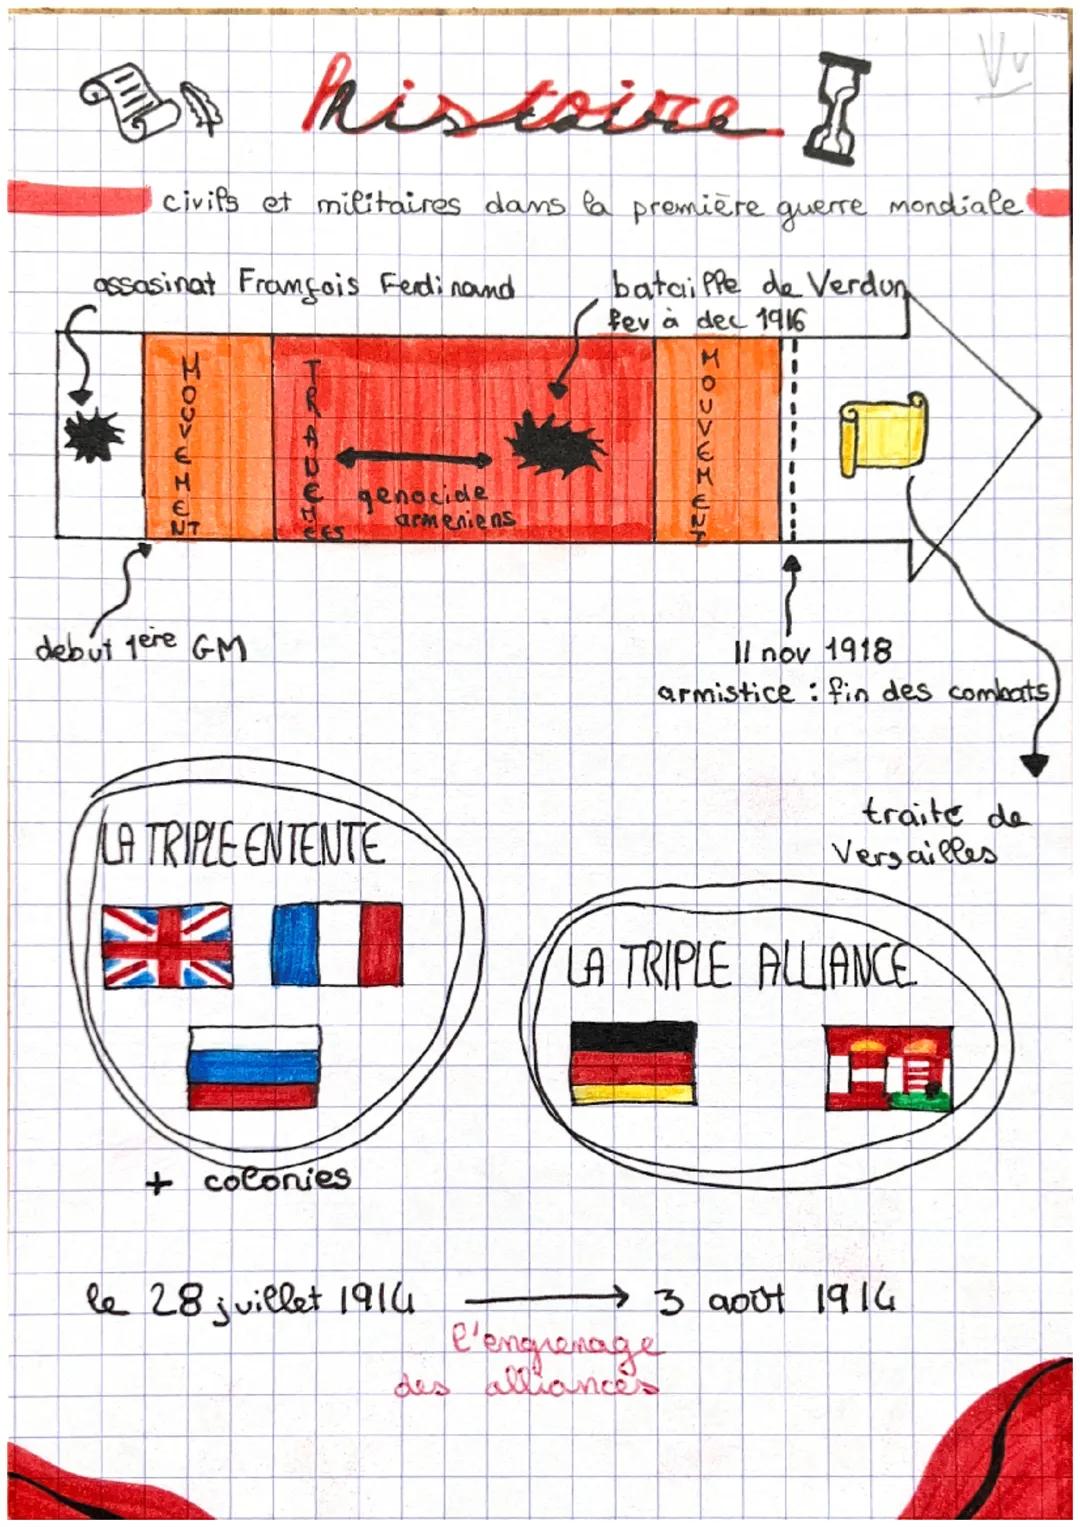 histoire
Vu
civils et militaires dans la première guerre mondiale
assasinat François Ferdinand
bataille de Verdun
fev à dec 1916
MOUVEMENT
TRANCHÉES
genocide
armeniens
MOUVEMENT
debut 1ère GM
11 nov 1918
armistice : fin des combats
traite de
Versailles
LA TRIPLE ENTENTE
+ colonies
LA TRIPLE ALLIANCE
le 28 juillet 1914 → 3 août 1914
l'engrenage
des alliances